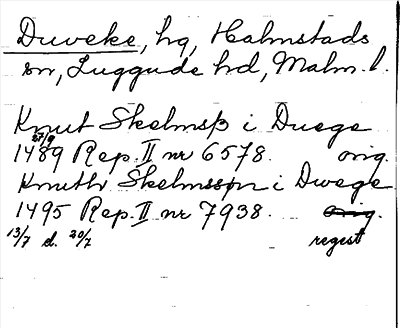 Duveke, hg, Halmstads
sn, Luggude hd, Malm. l.
Knut Skelmsß i Duege
27/9
1489 Rep. II nr 6578. orig.
Knuth Skelmssøn i Dwege
1495 Rep. II nr 7938. orig.
13/7 el. 20/7 regest